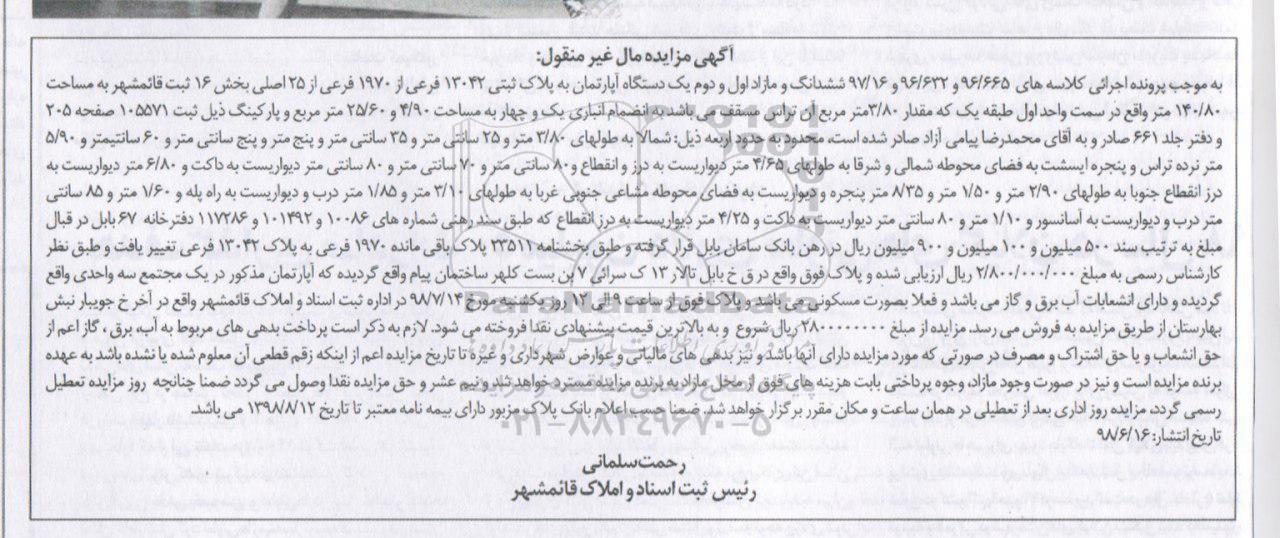 آگهی مزایده مال غیر منقول:
به موجب پرونده اجرائی کلاسه های ۹۶/۶۶۵ و ۹۶/۶۳۲ و ۹۷/۱۶ ششدانگ و مازاد اول و دوم یک دستگاه آپارتمان به پلاک ثبتی ۱۳۰۴۲ فرعی از ۱۹۷۰ فرعی از ۲۵ اصلی بخش ۱۶ ثبت قائمشهر به مساحت
۱۴۰/۸۰ متر واقع در سمت واحد اول طبقه یک که مقدار ۳/۸۰متر مربع آن تراس مسقف می باشد به انضمام انباری یک و چهار به مساحت ۴/۹۰ و ۲۵/۶۰ متر مربع و پارکینگ ذیل ثبت ۱۰۵۵۷۱ صفحه ۲۰۵
و دفتر جلد ۶۶۱ صادر و به آقای محمدرضا پیامی آزاد صادر شده است، محدود به حدود اربعه ذیل: شمالا به طولهای ۳/۸۰ متر و ۲۵ سانتی متر و ۳۵ سانتی متر و پنج متر و پنج سانتی متر و ۶۰ سانتیمتر و ۵/۹۰
متر نرده تراس و پنجره ایسشت به فضای محوطه شمالی و شرقا به طولهای ۴/۶۵ متر دیواریست به درز و انقطاع و ۸۰ سانتی متر و ۷۰ سانتی متر و ۸۰ سانتی متر دیواریست به داکت و ۶/۸۰ متر دیواریست به
درز انقطاع جنوبا به طولهای ۲/۹۰ متر و ۱/۵۰ متر و ۸/۳۵ متر پنجره و دیواریست به فضای محوطه مشاعی جنوبی غربا به طولهای ۳/۱۰ متر و ۱/۸۵ متر درب و دیواریست به راه پله و ۱/۶۰ متر و ۸۵ سانتی
متر درب و دیواریست به آسانسور و ۱/۱۰ متر و ۸۰ سانتی متر دیواریست به داکت و ۴/۲۵ متر دیواریست به درز انقطاع که طبق سند رهنی شماره های ۱۰۰۸۶ و ۱۰۱۴۹۲ و ۱۱۷۲۸۶ دفتر خانه ۶۷ بابل در قبال
مبلغ به ترتیب سند ۵۰۰ میلیون و ۱۰۰ میلیون و ۹۰۰ میلیون ریال در رهن بانک سامان بابل قرار گرفته و طبق بخشنامه ۳۳۵۱۱ پلاک باقی مانده ۱۹۷۰ فرعی به پلاک ۱۳۰۴۲ فرعی تغییر یافت و طبق نظر
کارشناس رسمی به مبلغ ۲/۸۰۰/۰۰۰/۰۰۰ ریال ارزیابی شده و پلاک فوق واقع در ق خ بابل تالار ۱۳ ک سرائی ۷ بن بست کلهر ساختمان پیام واقع گردیده که آپارتمان مذکور در یک مجتمع سه واحدی واقع
گردیده و دارای انشعابات آب برق و گاز می باشد و فعلا بصورت مسکونی می باشد و پلاک فوق از ساعت ۹ الی ۱۲ روز یکشنبه مورخ ۹۸/۷/۱۴ در اداره ثبت اسناد و املاک قائمشهر واقع در آخر خ جویبار نبش
بهارستان از طریق مزایده به فروش می رسد. مزایده از مبلغ ۲۸۰۰۰۰۰۰۰۰ ریال شروع و به بالاترین قیمت پیشنهادی نقدا فروخته می شود. لازم به ذکر است پرداخت بدهی های مربوط به آب، برق، گاز اعم از
حق انشعاب و یا حق اشتراک و مصرف در صورتی که مورد مزایده دارای آنها باشد و نیز بدهی های مالیاتی و عوارض شهرداری و غیره تا تاریخ مزایده اعم از اینکه رقم قطعی آن معلوم شده یا نشده باشد به عهده
برنده مزایده است و نیز در صورت وجود مازاد، وجوه پرداختی بابت هزینه های فوق از محل مازاد به برنده مزایده مسترد خواهد شد و نیم عشر و حق مزایده نقدا وصول می گردد ضمنا چنانچه روز مزایده تعطیل
رسمی گردد، مزایده روز اداری بعد از تعطیلی در همان ساعت و مکان مقرر برگزار خواهد شد. ضمنا حسب اعلام بانک پلاک مزبور دارای بیمه نامه معتبر تا تاریخ ۱۳۹۸/۸/۱۲ می باشد.
تاریخ انتشار: ۹۸/۶/۱۶
رحمت سامانی
رئیس ثبت اسناد و املاک قائمشهر
ParsNamadData
۰۲۱-۸۸۳۴۹۶۷۰-۵